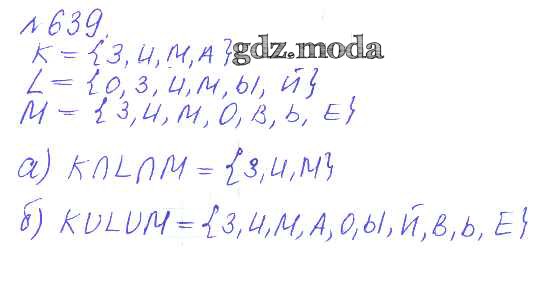 №639.
K = {З, И, М, А} gdz.moda
L = {О, З, И, М, Ы, Й}
M = {З, И, М, О, В, Ь, Е}
а) K∩L∩M = {З, И, М}
б) K∪L∪M = {З, И, М, А, О, Ы, Й, В, Ь, Е}